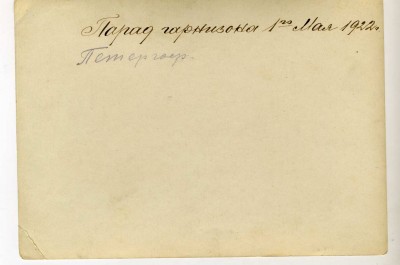 Парад гарнизона 1го Мая 1922г.
Петергоф.